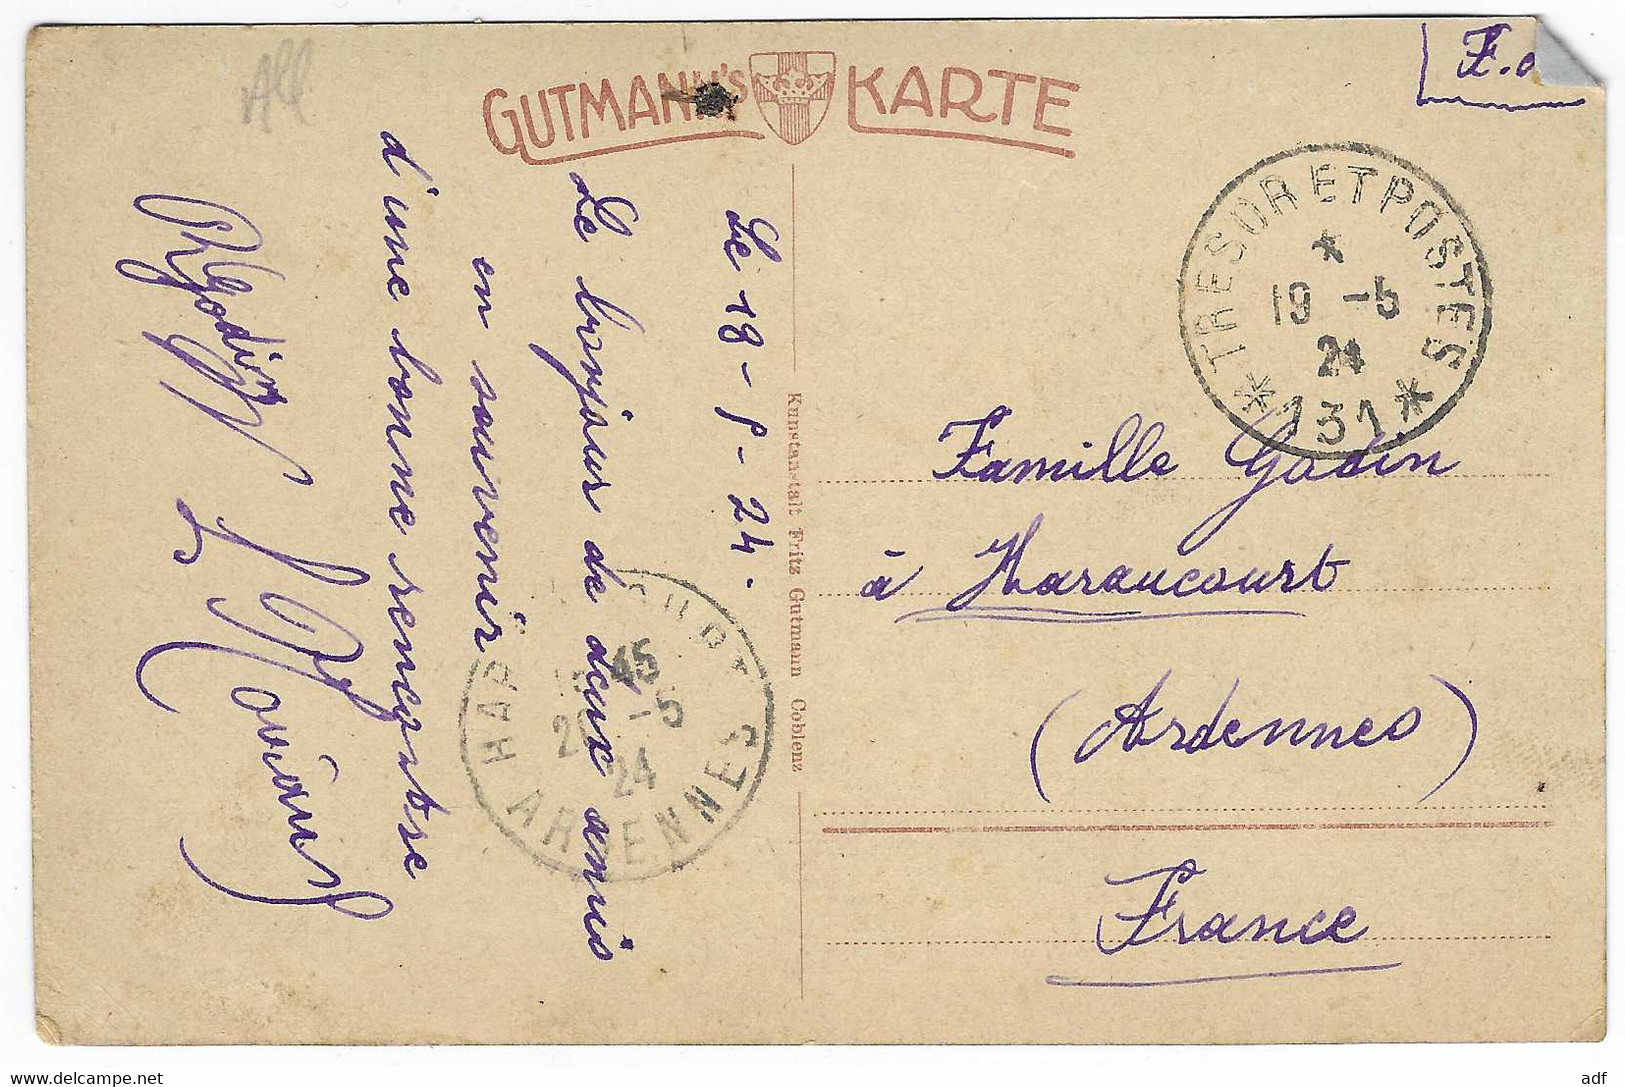 All
GUTMANN'S KARTE
Le 18-5-24.
Le bonjour de deux amis
en souvenir
d'une bonne rencontre
RGodin
TRESOR ET POSTES
19 -5
24
* 131 *
45
-5
24
ARDENNES
Kunstanstalt Fritz Gutmann Coblenz
Famille Godin
à Haraucourt
(Ardennes)
France
www.delcampe.net
adf